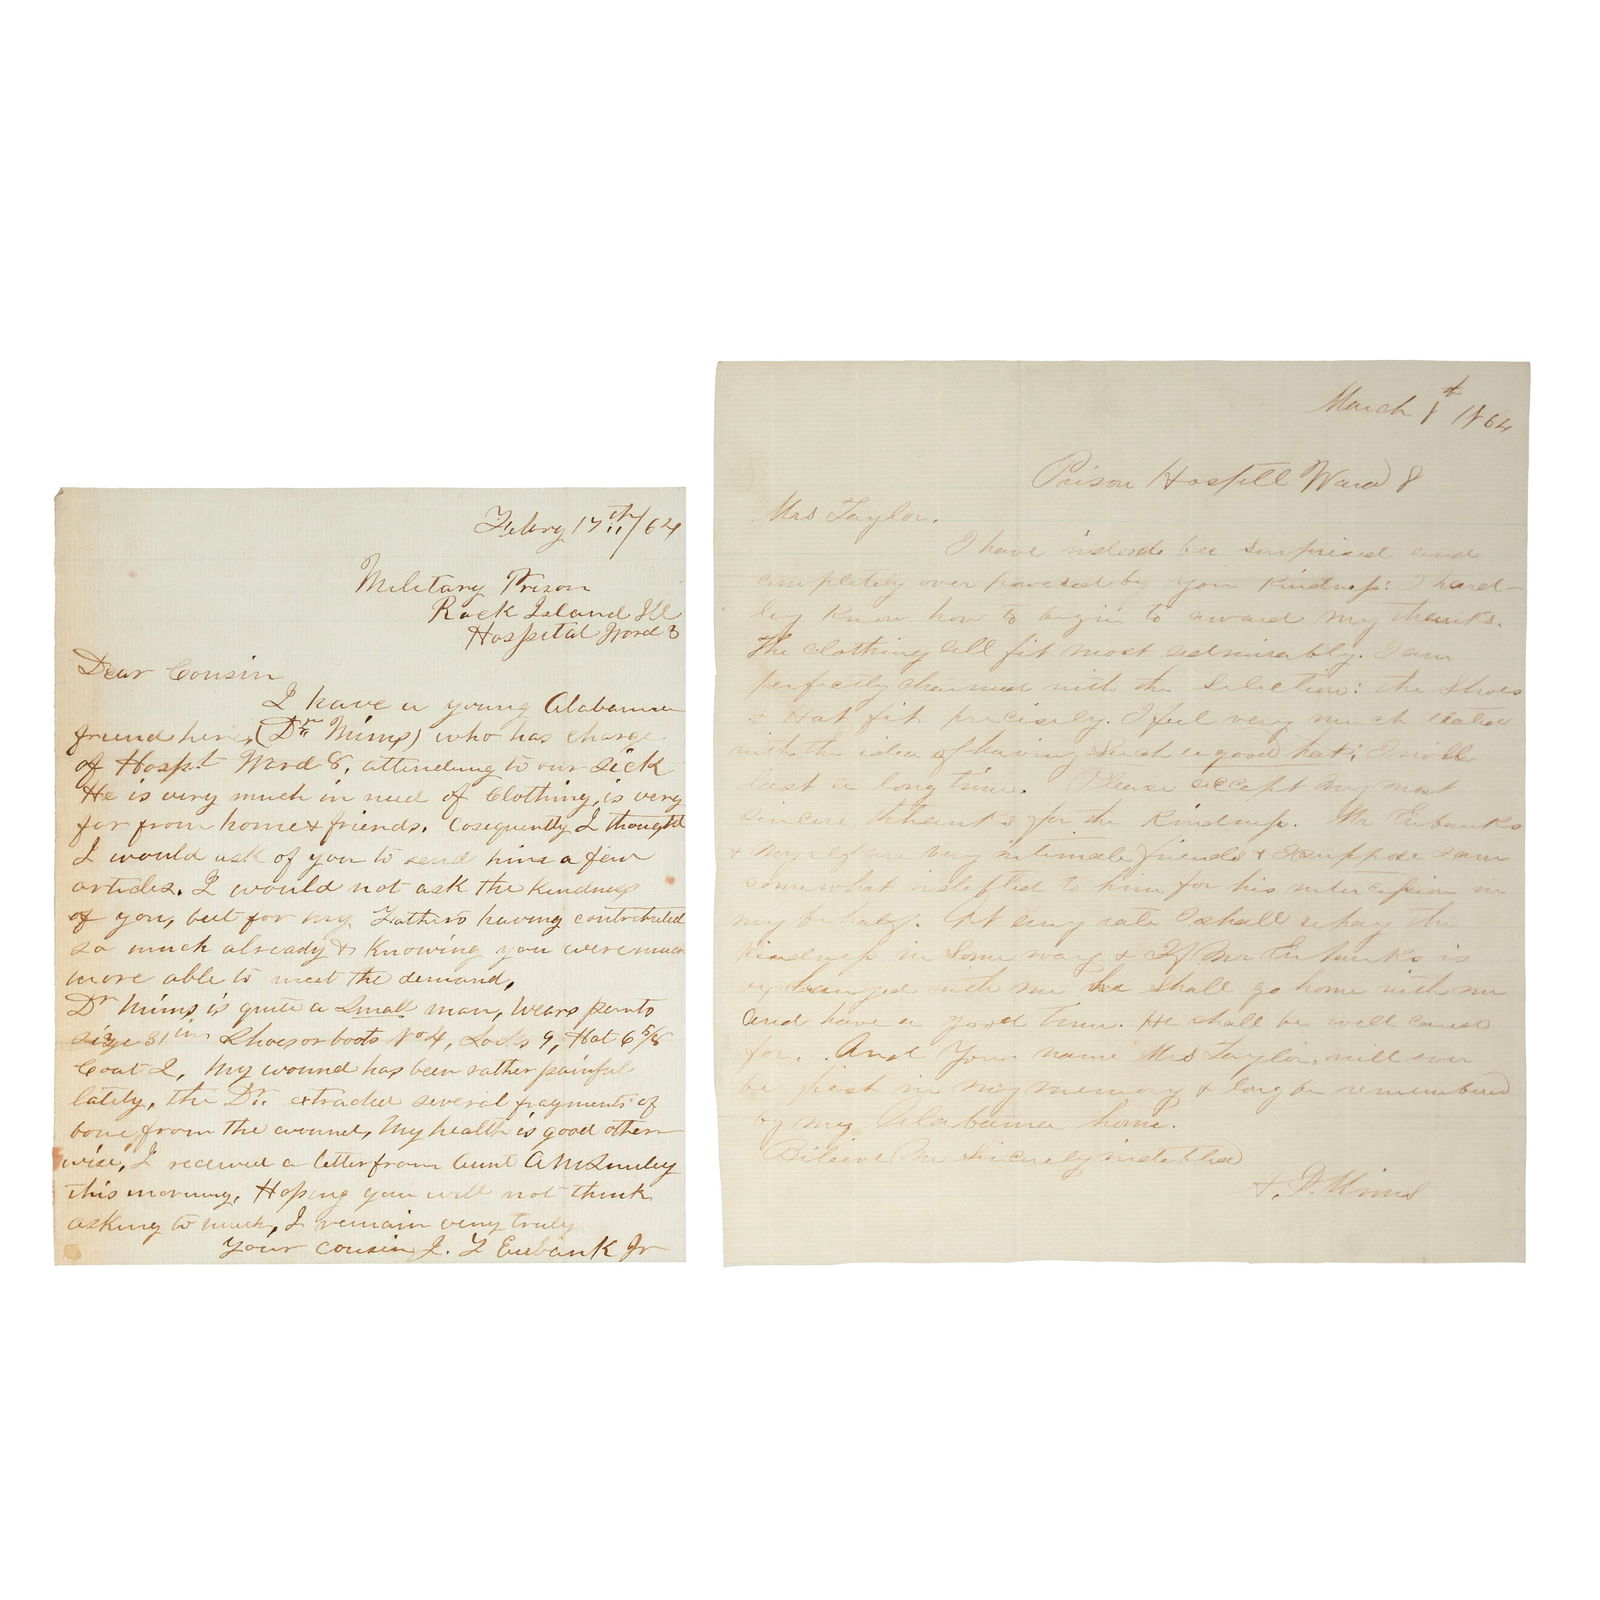 Febry 17th/64
Military Prison
Rock Island Ill
Hospital Word 3
Dear Cousin
I have a young Alabama
friend here, (Dr Mims) who has charge
of Hospt Word 8, attending to our sick
He is very much in need of Clothing, is very
far from home & friends. Cosequently I thought
I would ask of you to send him a few
articles. I would not ask the kindness
of you, but for my Fathers having contributed
so much already & knowing you were much
more able to meet the demand,
Dr Mims is quite a Small man, wears pants
size 31 in Shoes or boots No 4, Socks 9, Hat 6 5/8
Coat 2, My wound has been rather painful
lately, the Dr. extracted several fragments of
bone from the wound, My health is good other-
wise, I received a letter from Aunt
this morning, Hoping you will not think
asking to much, I remain very truly
Your cousin J. T Eubank Jr
March 8th 1864
Prison Hosptll Ward 8
Mrs Taylor.
I have indeed been surprised and
completely over powered by your kindness: I hard-
ley know how to begin to award my thanks.
The clothing all fit most admirably. I am
perfectly charmed with the Selection: the Shoes
& Hat fit precisely. I feel very much elated
with the idea of having Such a good hat; I will
last a long time. Please accept my most
sincere thanks for the Kindness. Mr Eubanks
& Myself are very intimate friends & I suppose I am
somewhat indebted to him for his intercession in
my behalf. At any rate I shall repay the
Kindness in Some way & If Mr Eubanks is
exchanged with me he Shall go home with me
and have a good time. He shall be well cared
for. And Your name Mrs Taylor, will ever
be fresh in my memory & long be remembered
by my Alabama home.
Believe Me Sincerely indebted
Mims